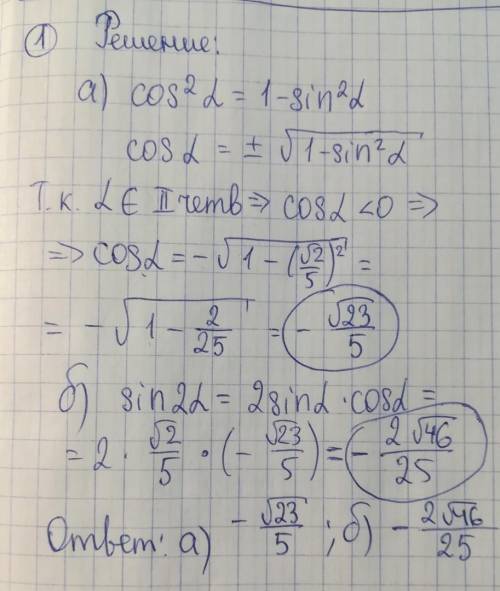 ① Решение:
а) cos²α = 1-sin²α
cosα = ± √(1-sin²α)
Т.к. α ∈ II четв ⇒ cosα <0 ⇒
⇒ cosα = -√(1 - (√2/5)²) =
= -√(1 - 2/25) = - √23/5
б) sin2α = 2sinα · cosα =
= 2 · √2/5 · (- √23/5) = - 2√46/25
Ответ: а) - √23/5 ; б) - 2√46/25